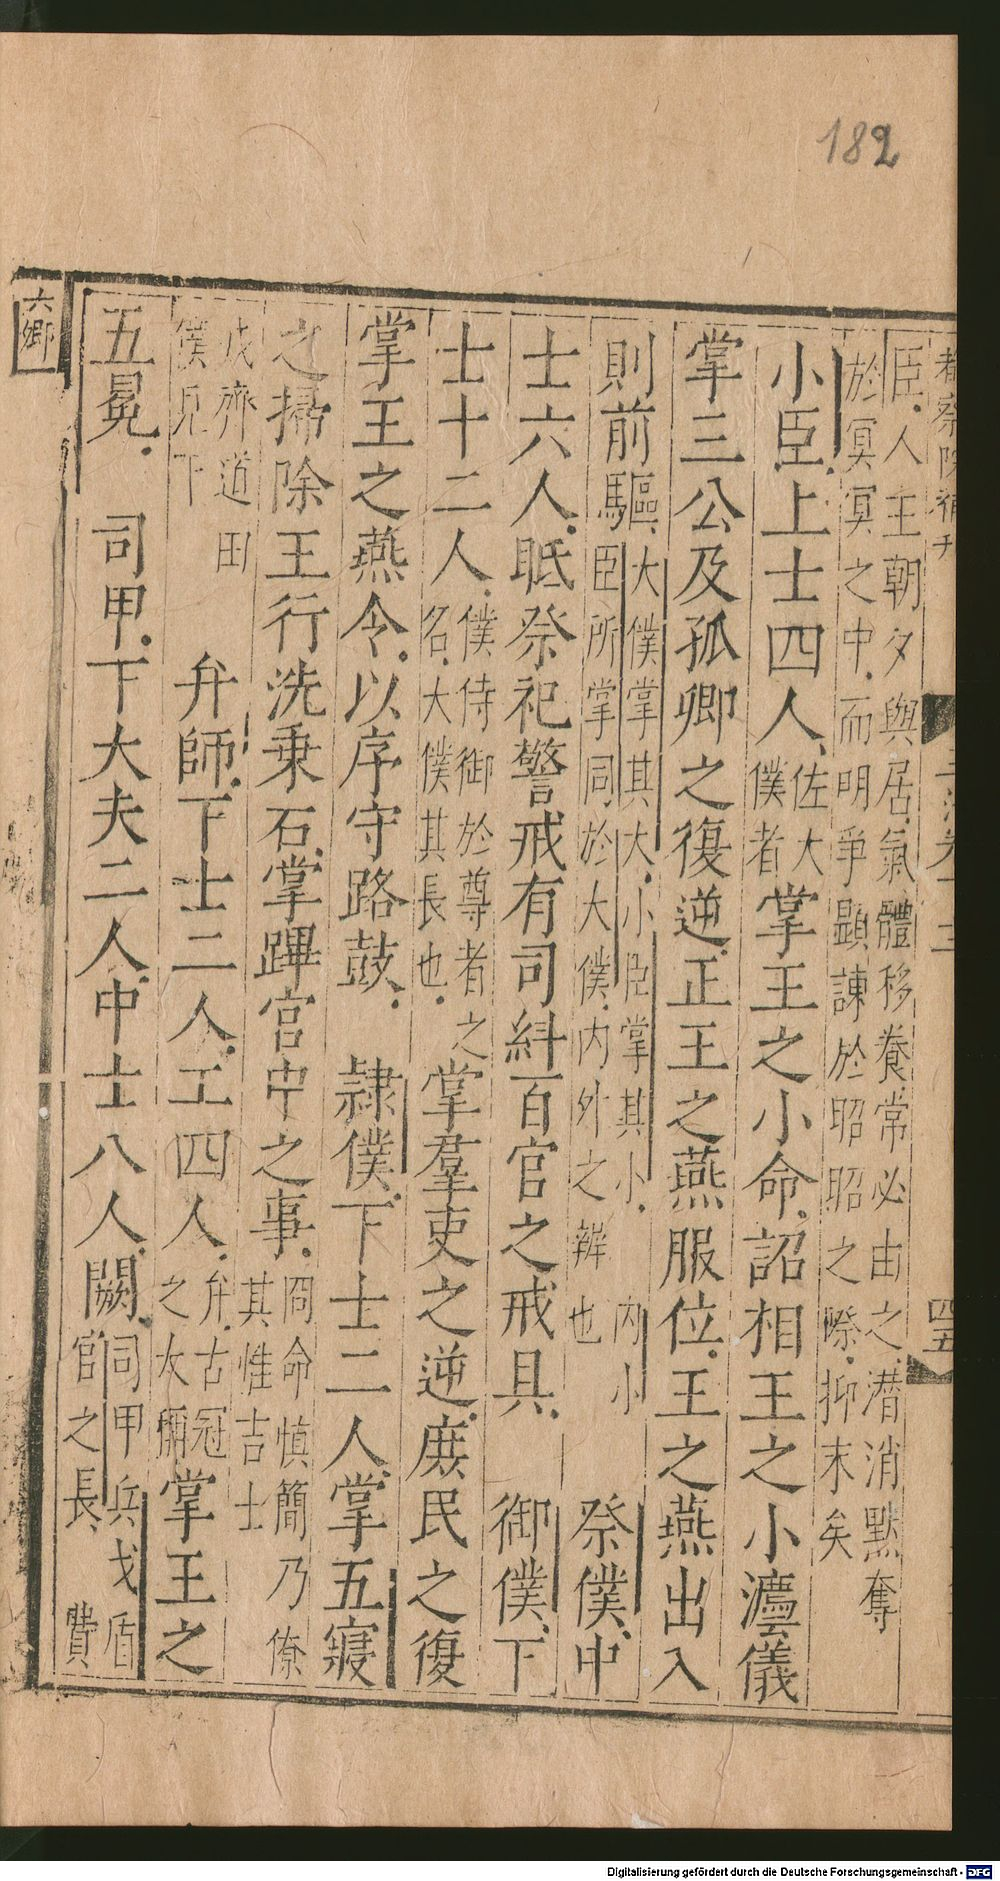 182
都察院補刊
四五
臣人主朝夕與居氣體移養常必由之潛消默奪
於冥冥之中而明爭顯諫於昭昭之際抑末矣
小臣上士四人佐大僕者掌王之小命詔相王之小灋儀
掌三公及孤卿之復逆正王之燕服位王之燕出入
則前驅大僕掌其大小臣掌其小內小臣所掌同於大僕內外之辨也祭僕中
士六人眂祭祀警戒有司糾百官之戒具御僕下
士十二人僕侍御於尊者之名大僕其長也掌羣吏之逆庶民之復
掌王之燕令以序守路鼓隸僕下士二人掌五寢
之掃除王行洗乗石掌蹕宮中之事冏命慎簡乃僚其惟吉士
戎齊道田僕見下弁師下士二人工四人弁古冠之大掌王之
五冕司甲下大夫二人中士八人闕司甲兵戈盾官之長
六鄉
Digitalisierung gefördert durch die Deutsche Forschungsgemeinschaft - DFG